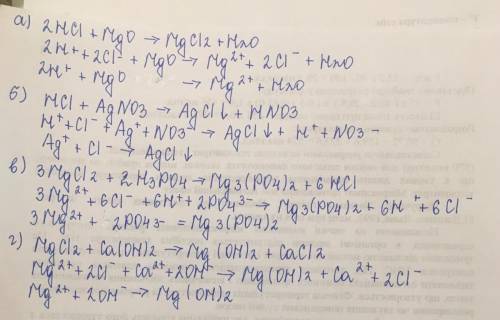 а) 2HCl + MgO → MgCl2 + H2O
2H+ + 2Cl- + MgO → Mg2+ + 2Cl- + H2O
2H+ + MgO → Mg2+ + H2O
б) HCl + AgNO3 → AgCl↓ + HNO3
H+ + Cl- + Ag+ + NO3- → AgCl↓ + H+ + NO3-
Ag+ + Cl- → AgCl↓
в) 3MgCl2 + 2H3PO4 → Mg3(PO4)2 + 6HCl
3Mg2+ + 6Cl- + 6H+ + 2PO43- → Mg3(PO4)2 + 6H+ + 6Cl-
3Mg2+ + 2PO43- = Mg3(PO4)2
г) MgCl2 + Ca(OH)2 → Mg(OH)2 + CaCl2
Mg2+ + 2Cl- + Ca2+ + 2OH- → Mg(OH)2 + Ca2+ + 2Cl-
Mg2+ + 2OH- → Mg(OH)2